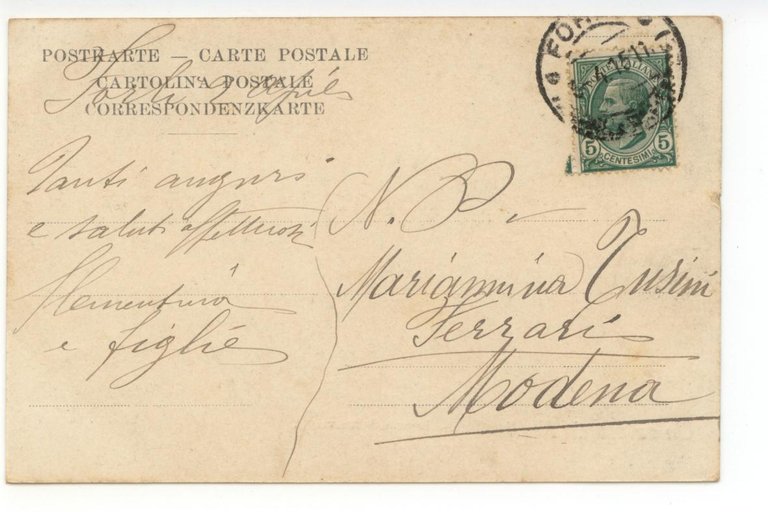 POSTKARTE — CARTE POSTALE
CARTOLINA POSTALE
CORRESPONDENZKARTE
Forlì
Tanti auguri
e saluti affettuosi
Clementina
e figlie
N. P. –
Mariannina Tusini
Ferrari
Modena
5 5
CENTESIMI